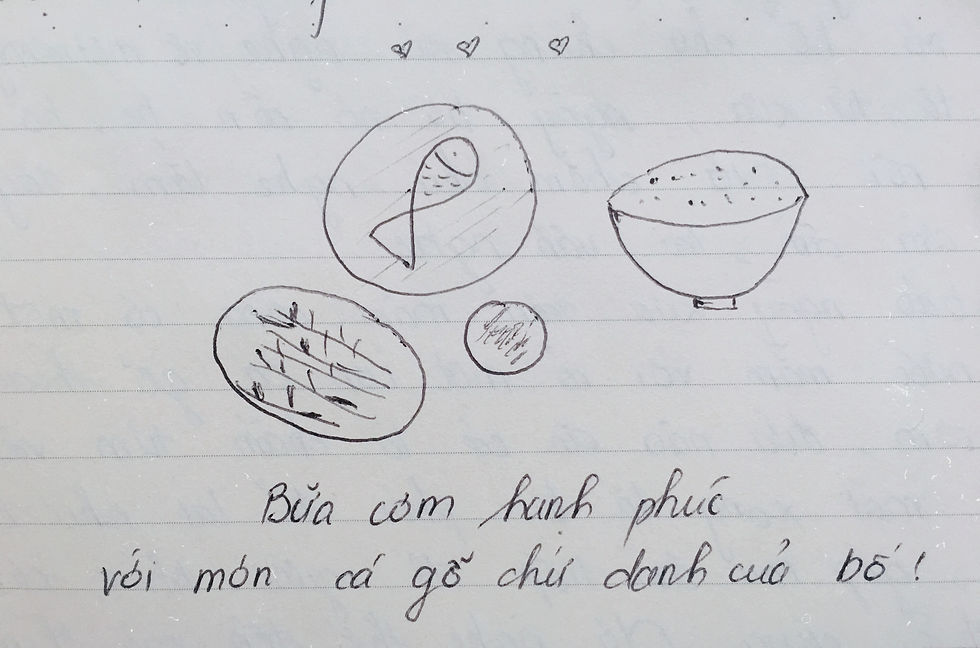 Bữa cơm hạnh phúc
với món cá gỗ chứ danh của bố!